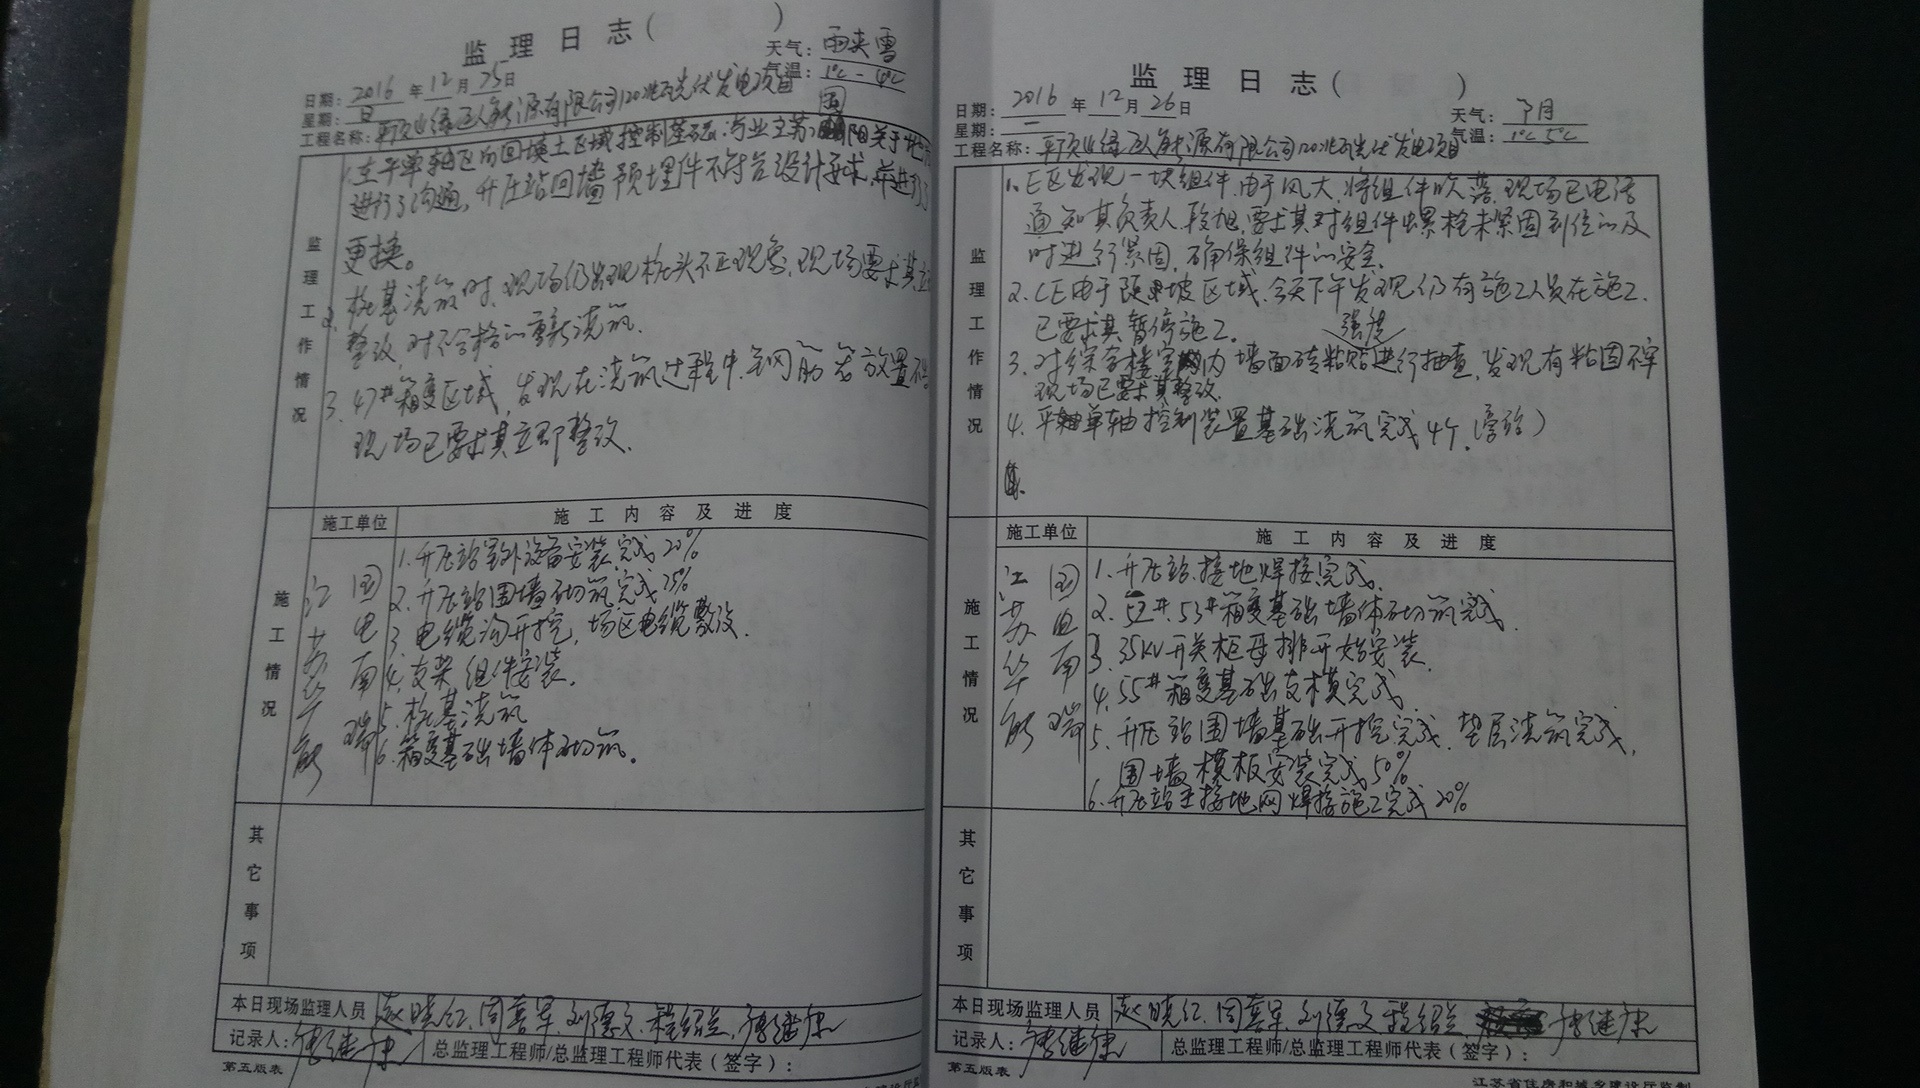 监理日志（ ）
日期：2016年12月25日 天气：雨夹雪
星期：日 气温：1℃-4℃
工程名称：平顶山绿区人新能源有限公司120兆瓦光伏发电项目
监理工作情况
1.在平单轴区的回填土区域控制基础,与业主 关于
进行了沟通,升压站围墙预埋件不符合设计要求,并进行了
更换。
2.桩基浇筑时,现场仍出现桩头不正现象,现场要求其立
整改,对不合格的重新浇筑.
3.47#箱变区域,发现在浇筑过程中,钢筋笼放置不
现场已要求其立即整改.
施工单位 施工内容及进度
施工情况
江苏华能
国电南瑞
1.升压站室外设备安装完成20%
2.升压站围墙砌筑完成25%
3.电缆沟开挖,场区电缆敷设.
4.支架组件安装.
5.桩基浇筑
6.箱变基础墙体砌筑。
其它事项
本日现场监理人员 赵晓红.周喜军.刘德文.程绍兰.
记录人：
总监理工程师/总监理工程师代表（签字）：
第五版表
监理日志（ ）
日期：2016年12月26日 天气：阴
星期：一 气温：1℃ 5℃
工程名称：平顶山绿区人新能源有限公司120兆瓦光伏发电项目
监理工作情况
1.E区发现一块组件,由于风大,将组件吹落,现场已电话
通知其负责人段旭,要求其对组件螺栓未紧固到位的及
时进行紧固,确保组件的安全.
2.CE由于陡坡区域,今天下午发现仍有施工人员在施工.
已要求其暂停施工。
3.对综合楼室内墙面砖粘贴强度进行抽查,发现有粘固不牢
现场已要求其整改.
4.平单轴控制装置基础浇筑完成4个.
施工单位 施工内容及进度
施工情况
江苏华能
国电南瑞
1.升压站接地焊接完成.
2.52#.53#箱变基础墙体砌筑完成.
3.35KV开关柜母排开始安装.
4.55#箱变基础支模完成
5.升压站围墙基础开挖完成.垫层浇筑完成,
围墙模板安装完成50%
6.升压站主接地网焊接施工完成20%
其它事项
本日现场监理人员 赵晓红.周喜军.刘德文.程绍兰.
记录人：
总监理工程师/总监理工程师代表（签字）：
第五版表
江苏省住房和城乡建设厅监制